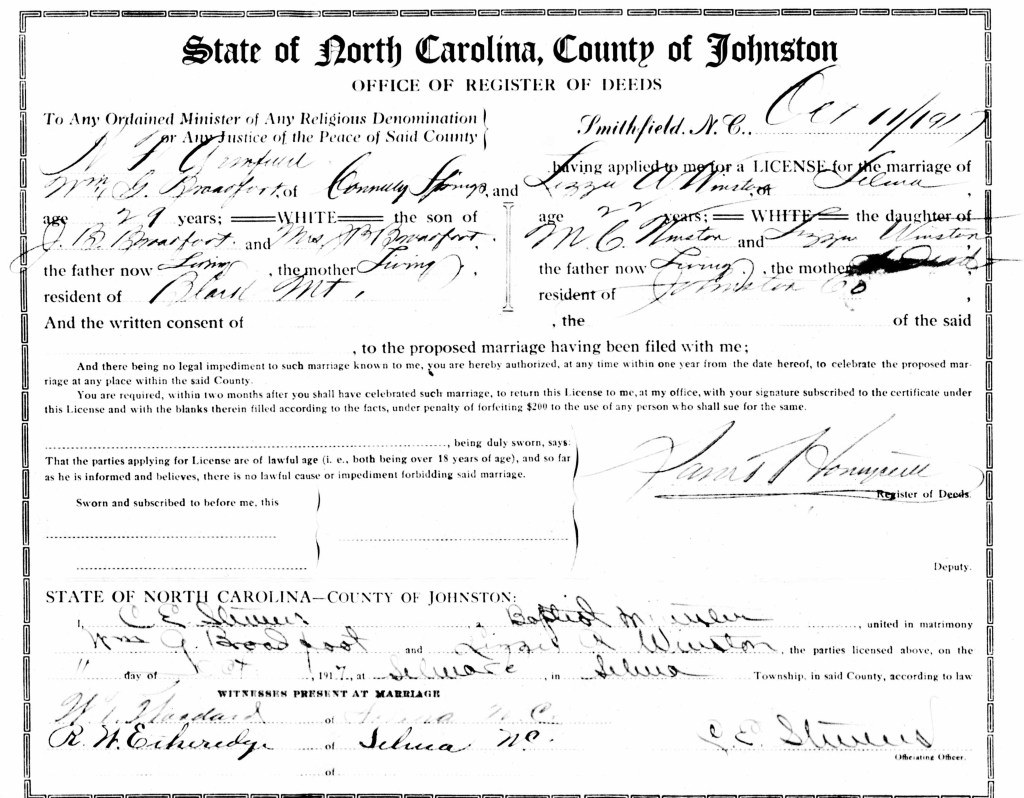 State of North Carolina, County of Johnston
OFFICE OF REGISTER OF DEEDS
To Any Ordained Minister of Any Religious Denomination
or Any Justice of the Peace of Said County
Smithfield, N.C., Oct 11/1917
having applied to me for a LICENSE for the marriage of
Wm. G. Broadfoot of Connelly Springs, and Lizzie A Winston, of Selma,
age 29 years; WHITE the son of
age 22 years; WHITE the daughter of
J. B. Broadfoot. and Mrs. J B Broadfoot.
M. C. Winston and Lizzie Winston
the father now Living, the mother Living,
the father now Living, the mother Dead,
resident of Black Mt,
resident of Johnston Co,
And the written consent of , the of the said
, to the proposed marriage having been filed with me;
And there being no legal impediment to such marriage known to me, you are hereby authorized, at any time within one year from the date hereof, to celebrate the proposed mar-
riage at any place within the said County.
You are required, within two months after you shall have celebrated such marriage, to return this License to me, at my office, with your signature subscribed to the certificate under
this License and with the blanks therein filled according to the facts, under penalty of forfeiting $200 to the use of any person who shall sue for the same.
, being duly sworn, says:
That the parties applying for License are of lawful age (i. e., both being over 18 years of age), and so far
as he is informed and believes, there is no lawful cause or impediment forbidding said marriage.
Sam T Honeycutt
Register of Deeds.
Sworn and subscribed to before me, this
Deputy.
STATE OF NORTH CAROLINA—COUNTY OF JOHNSTON:
I, C. E. Stevens a Baptist Minister, united in matrimony
Wm G. Broadfoot and Lizzie A Winston, the parties licensed above, on the
11 day of Oct, 1917, at Selma N C, in Selma Township, in said County, according to law
WITNESSES PRESENT AT MARRIAGE
of Selma N. C.
R. W. Etheredge of Selma N C.
of
C. E. Stevens
Officiating Officer.